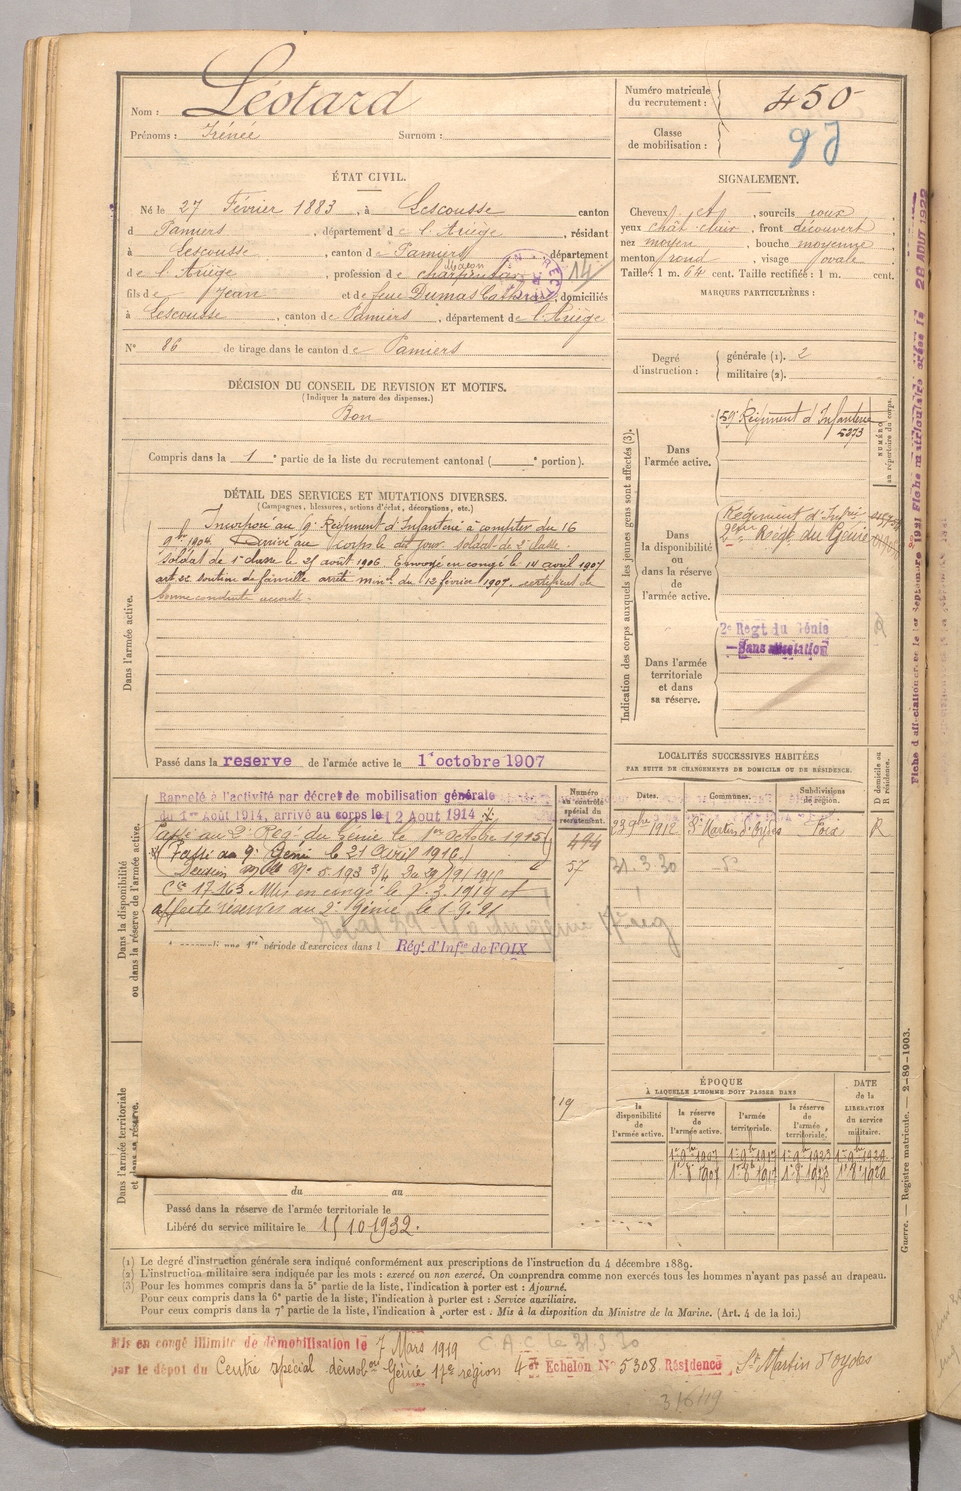 Nom : Léotard
Prénoms : Irénée Surnom :
Numéro matricule du recrutement : 450
Classe de mobilisation :
ÉTAT CIVIL.
Né le 27 Février 1883, à Lescousse canton
d Pamiers, département de l'Ariège, résidant
à Lescousse, canton de Pamiers département
de l'Ariège, profession de charpentier
fils de Jean et de feue Dumas Catherine, domiciliés
à Lescousse, canton de Pamiers, département de l'Ariège
N° 86 de tirage dans le canton de Pamiers
SIGNALEMENT.
Cheveux, sourcils roux
yeux chât clair, front découvert
nez moyen, bouche moyenne
menton rond, visage ovale
Taille : 1 m. 64 cent. Taille rectifiée : 1 m. cent.
MARQUES PARTICULIÈRES :
Degré d'instruction : générale (1). 2
militaire (2).
DÉCISION DU CONSEIL DE REVISION ET MOTIFS.
(Indiquer la nature des dispenses.)
Bon
Compris dans la 1e partie de la liste du recrutement cantonal ( e portion).
DÉTAIL DES SERVICES ET MUTATIONS DIVERSES.
(Campagnes, blessures, actions d'éclat, décorations, etc.)
Dans l'armée active.
Incorporé au 9e Régiment d'Infanterie à compter du 16
9bre 1904. Arrivé au corps le dit jour. soldat de 2e classe.
soldat de 1e classe le 25 août 1906. Envoyé en congé le 14 avril 1907
art. 22 soutien de famille arrêté minel du 12 février 1907. certificat de
bonne conduite accordé.
Passé dans la reserve de l'armée active le 1r octobre 1907
Indication des corps auxquels les jeunes gens sont affectés (3).
NUMÉRO au répertoire du corps.
Dans l'armée active.
59e Régiment d'Infanterie
5273
Dans la disponibilité ou dans la réserve de l'armée active.
Régiment d'Infrie
2e Régt du Génie
Dans l'armée territoriale et dans sa réserve.
2e Régt du Génie
Sans affectation
Dans la disponibilité ou dans la réserve de l'armée active.
Rappelé à l'activité par décret de mobilisation générale
du 1er Août 1914, arrivé au corps le 12 Aout 1914
Passé au 2e Régt du Génie le 1er Octobre 1915
Passé au 9e Génie le 21 Avril 1916
Mis en congé le 7.3.1919 et
affecté réserves au 2e Génie le 1.9.21
1re période d'exercices dans l Rég. d'Infie de FOIX
Numéro au contrôle spécial du recrutement.
494
57
19
LOCALITÉS SUCCESSIVES HABITÉES
PAR SUITE DE CHANGEMENTS DE DOMICILE OU DE RÉSIDENCE.
Dates. Communes. Subdivisions de région. D domicile ou R résidence.
23 9bre 1912 St Martin d'Oydes Foix R
31.3.30 do
ÉPOQUE
À LAQUELLE L'HOMME DOIT PASSER DANS
DATE de la LIBÉRATION du service militaire.
la disponibilité de l'armée active. la réserve de l'armée active. l'armée territoriale. la réserve de l'armée territoriale.
1er 9bre 1907 1er 9bre 1917 1er 9bre 1923 1er 9bre 1929
1er 8bre 1907 1er 8bre 1917 1er 8bre 1923 1er 8bre 1929
Dans l'armée territoriale et dans sa réserve.
du au
Passé dans la réserve de l'armée territoriale le
Libéré du service militaire le 15 10 1932.
(1) Le degré d'instruction générale sera indiqué conformément aux prescriptions de l'instruction du 4 décembre 1889.
(2) L'instruction militaire sera indiquée par les mots : exercé ou non exercé. On comprendra comme non exercés tous les hommes n'ayant pas passé au drapeau.
(3) Pour les hommes compris dans la 5e partie de la liste, l'indication à porter est : Ajourné.
Pour ceux compris dans la 6e partie de la liste, l'indication à porter est : Service auxiliaire.
Pour ceux compris dans la 7e partie de la liste, l'indication à porter est : Mis à la disposition du Ministre de la Marine. (Art. 4 de la loi.)
Guerre. — Registre matricule. — 2-89-1903.
Mis en congé illimité de démobilisation le 7 Mars 1919 C.A.C. le 31.3.30
par le dépot du Centre spécial démobon Génie 17e région 4e Echelon N° 5308 Résidence St Martin d'Oydes